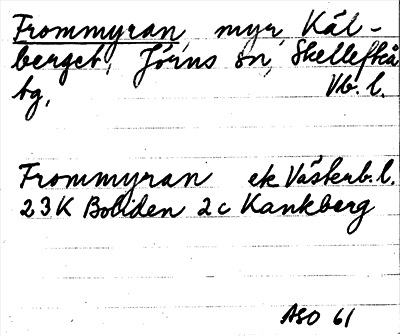 Frommyran, myr, Kål-
berget, Jörns sn, Skellefteå
tg, Vb. l.
Frommyran ek Västerb. l.
23K Boliden 2c Kankberg
ASO 61